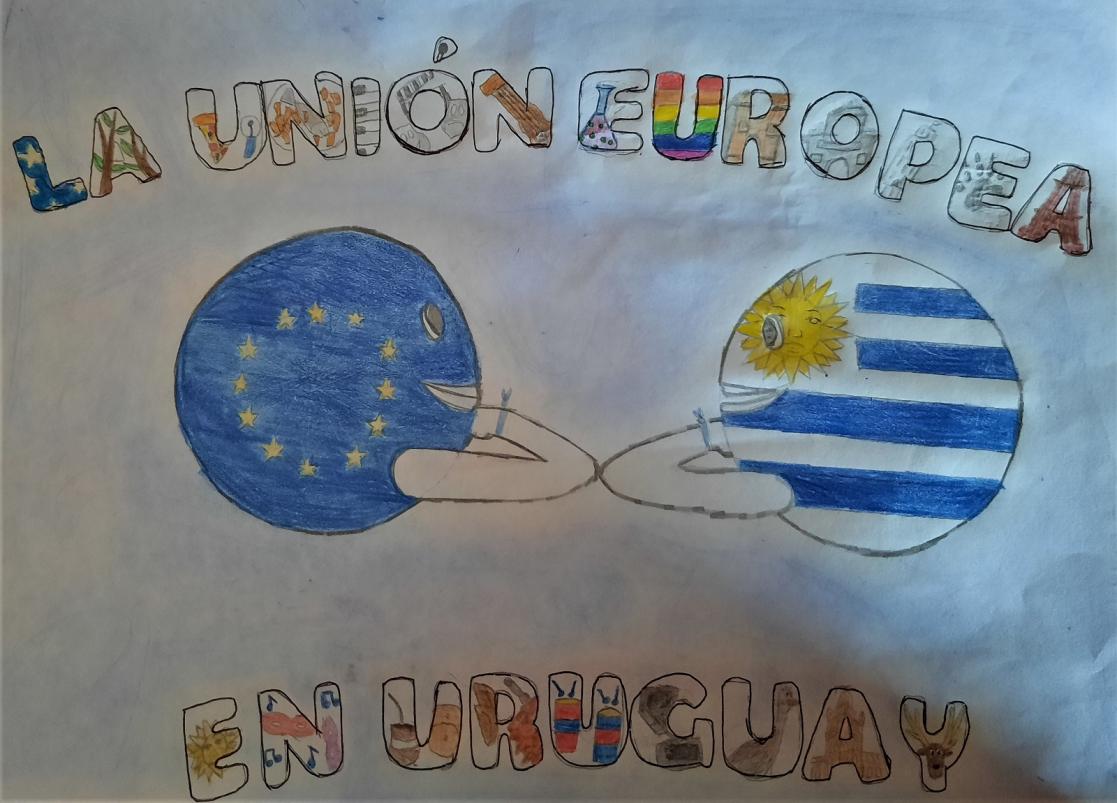 LA UNIÓN EUROPEA
EN URUGUAY